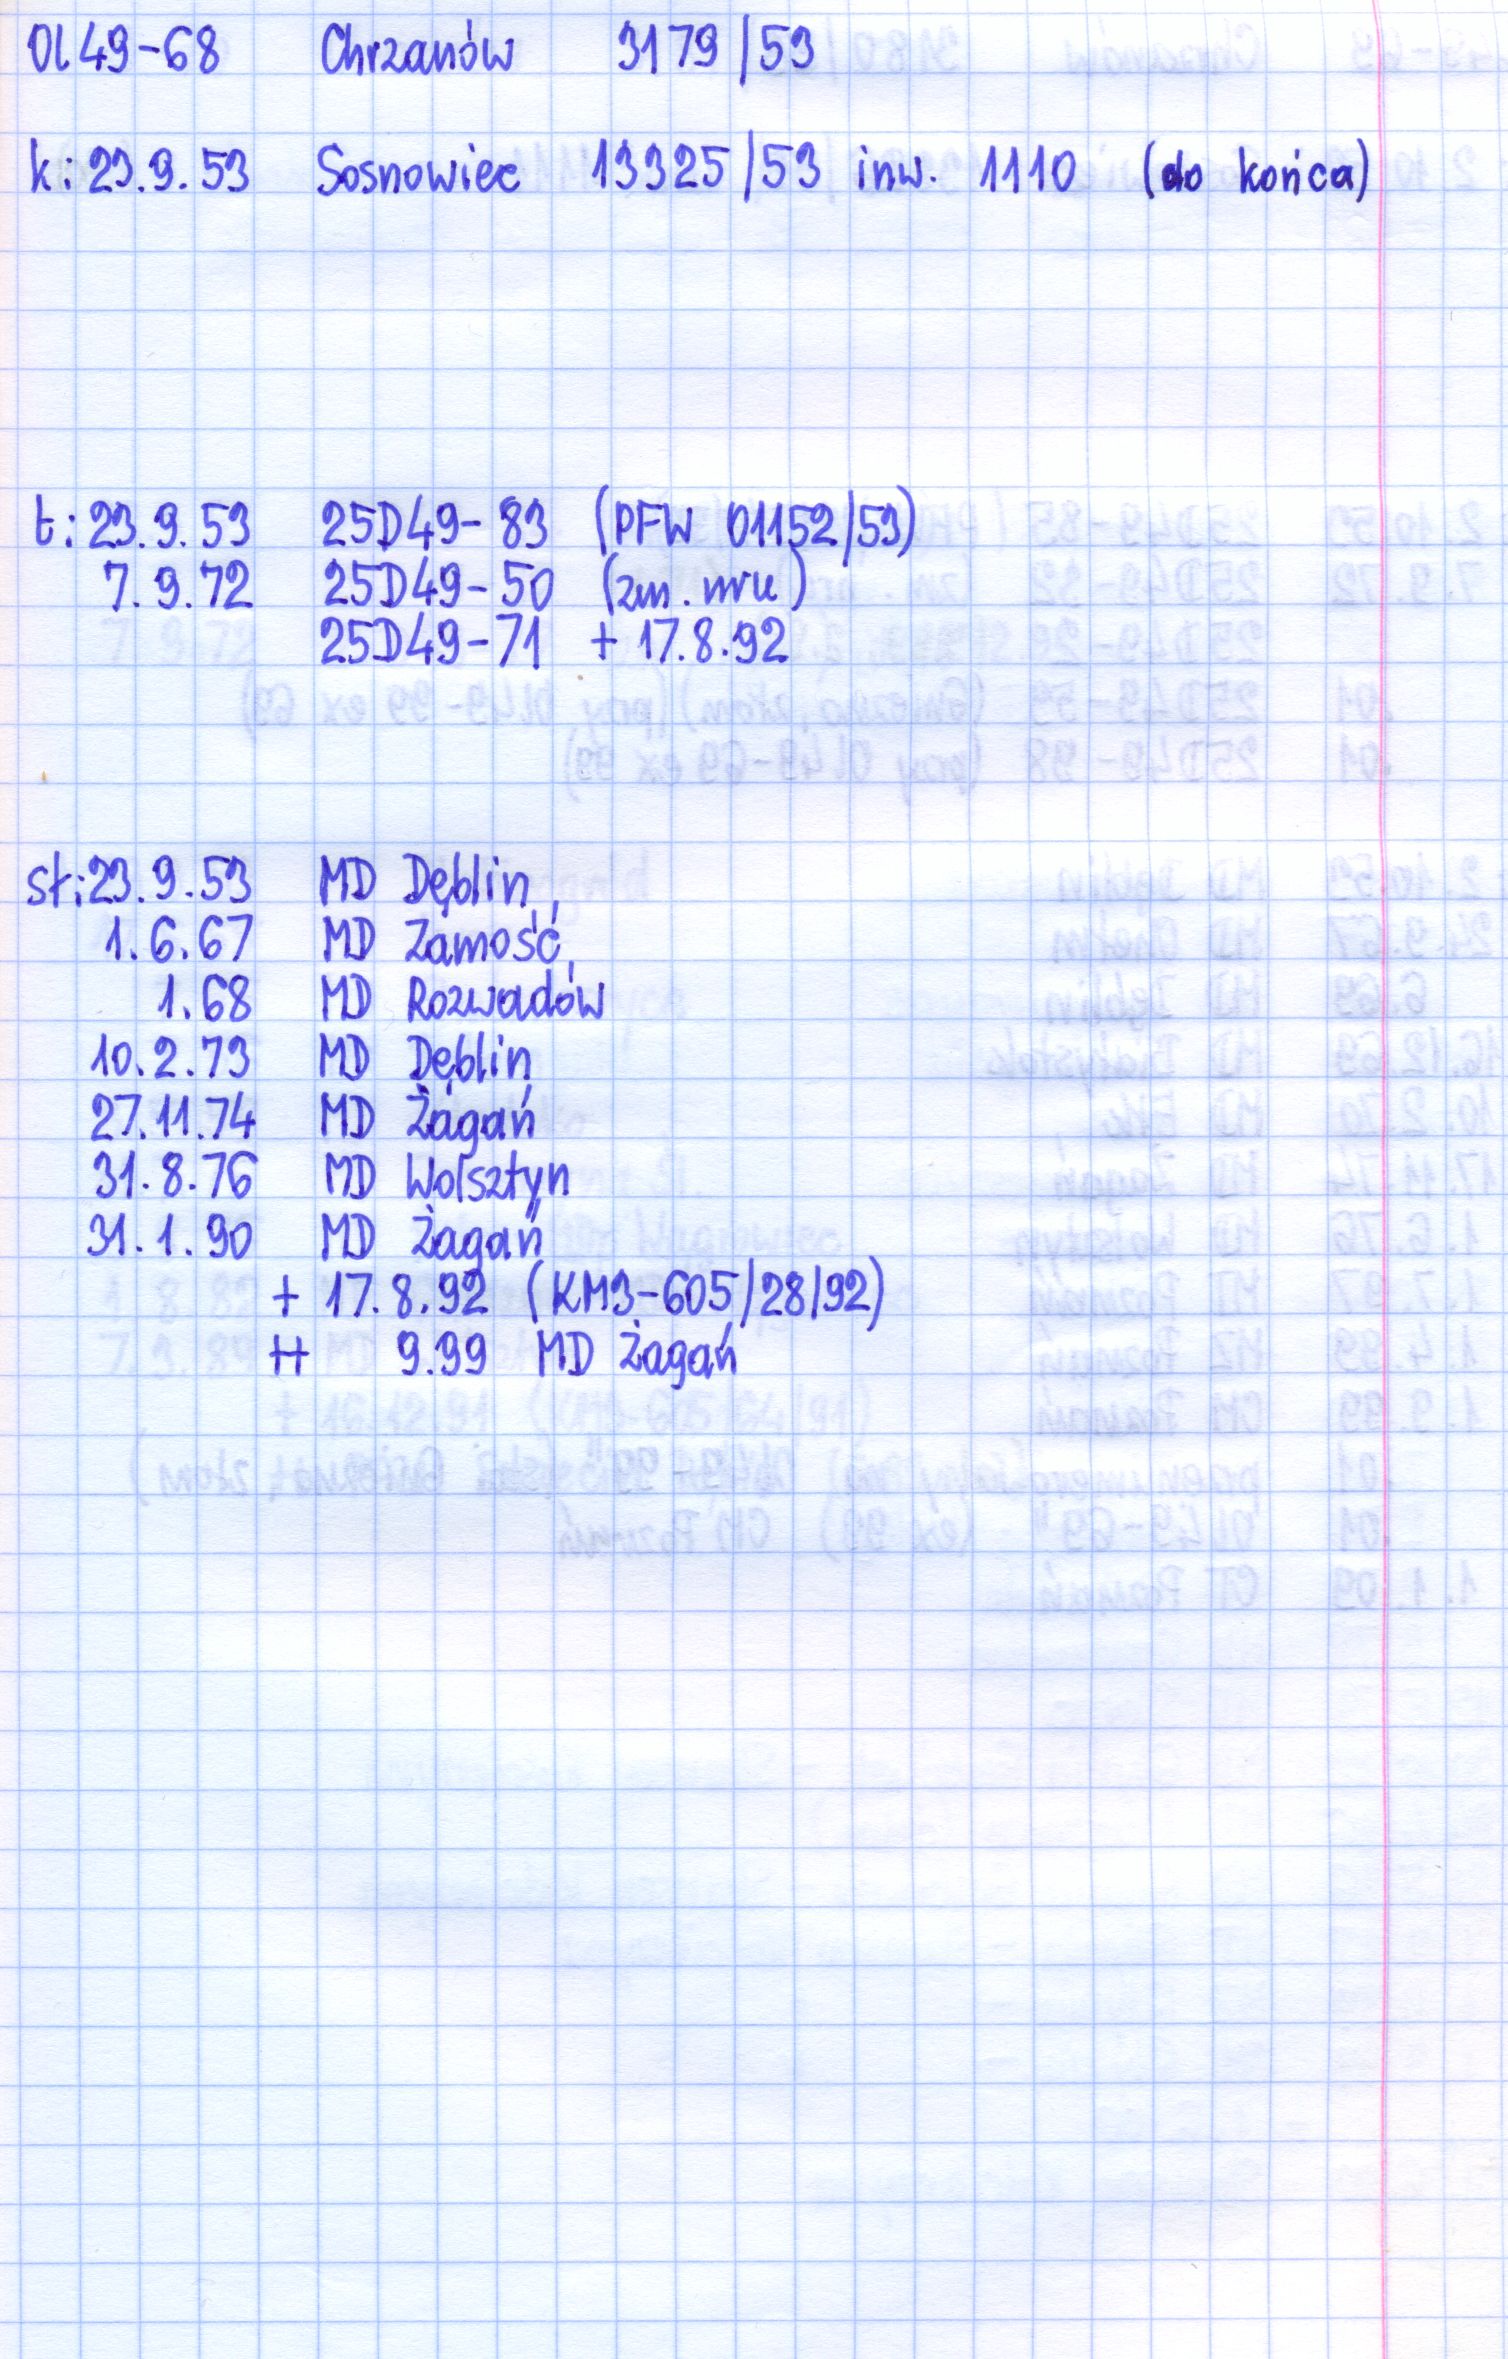 Ol49-68 Chrzanów 3179/53
k: 23.9.53 Sosnowiec 13325/53 inw. 1110 (do końca)
t: 23.9.53 25D49-83 (PFW 01152/53)
7.9.72 25D49-50 (zm. nru)
25D49-71 + 17.8.92
sł: 23.9.53 MD Dęblin
1.6.67 MD Zamość
1.68 MD Rozwadów
10.2.73 MD Dęblin
27.11.74 MD Żagań
31.8.76 MD Wolsztyn
31.1.90 MD Żagań
+ 17.8.92 (KM3-605/28/92)
++ 9.99 MD Żagań